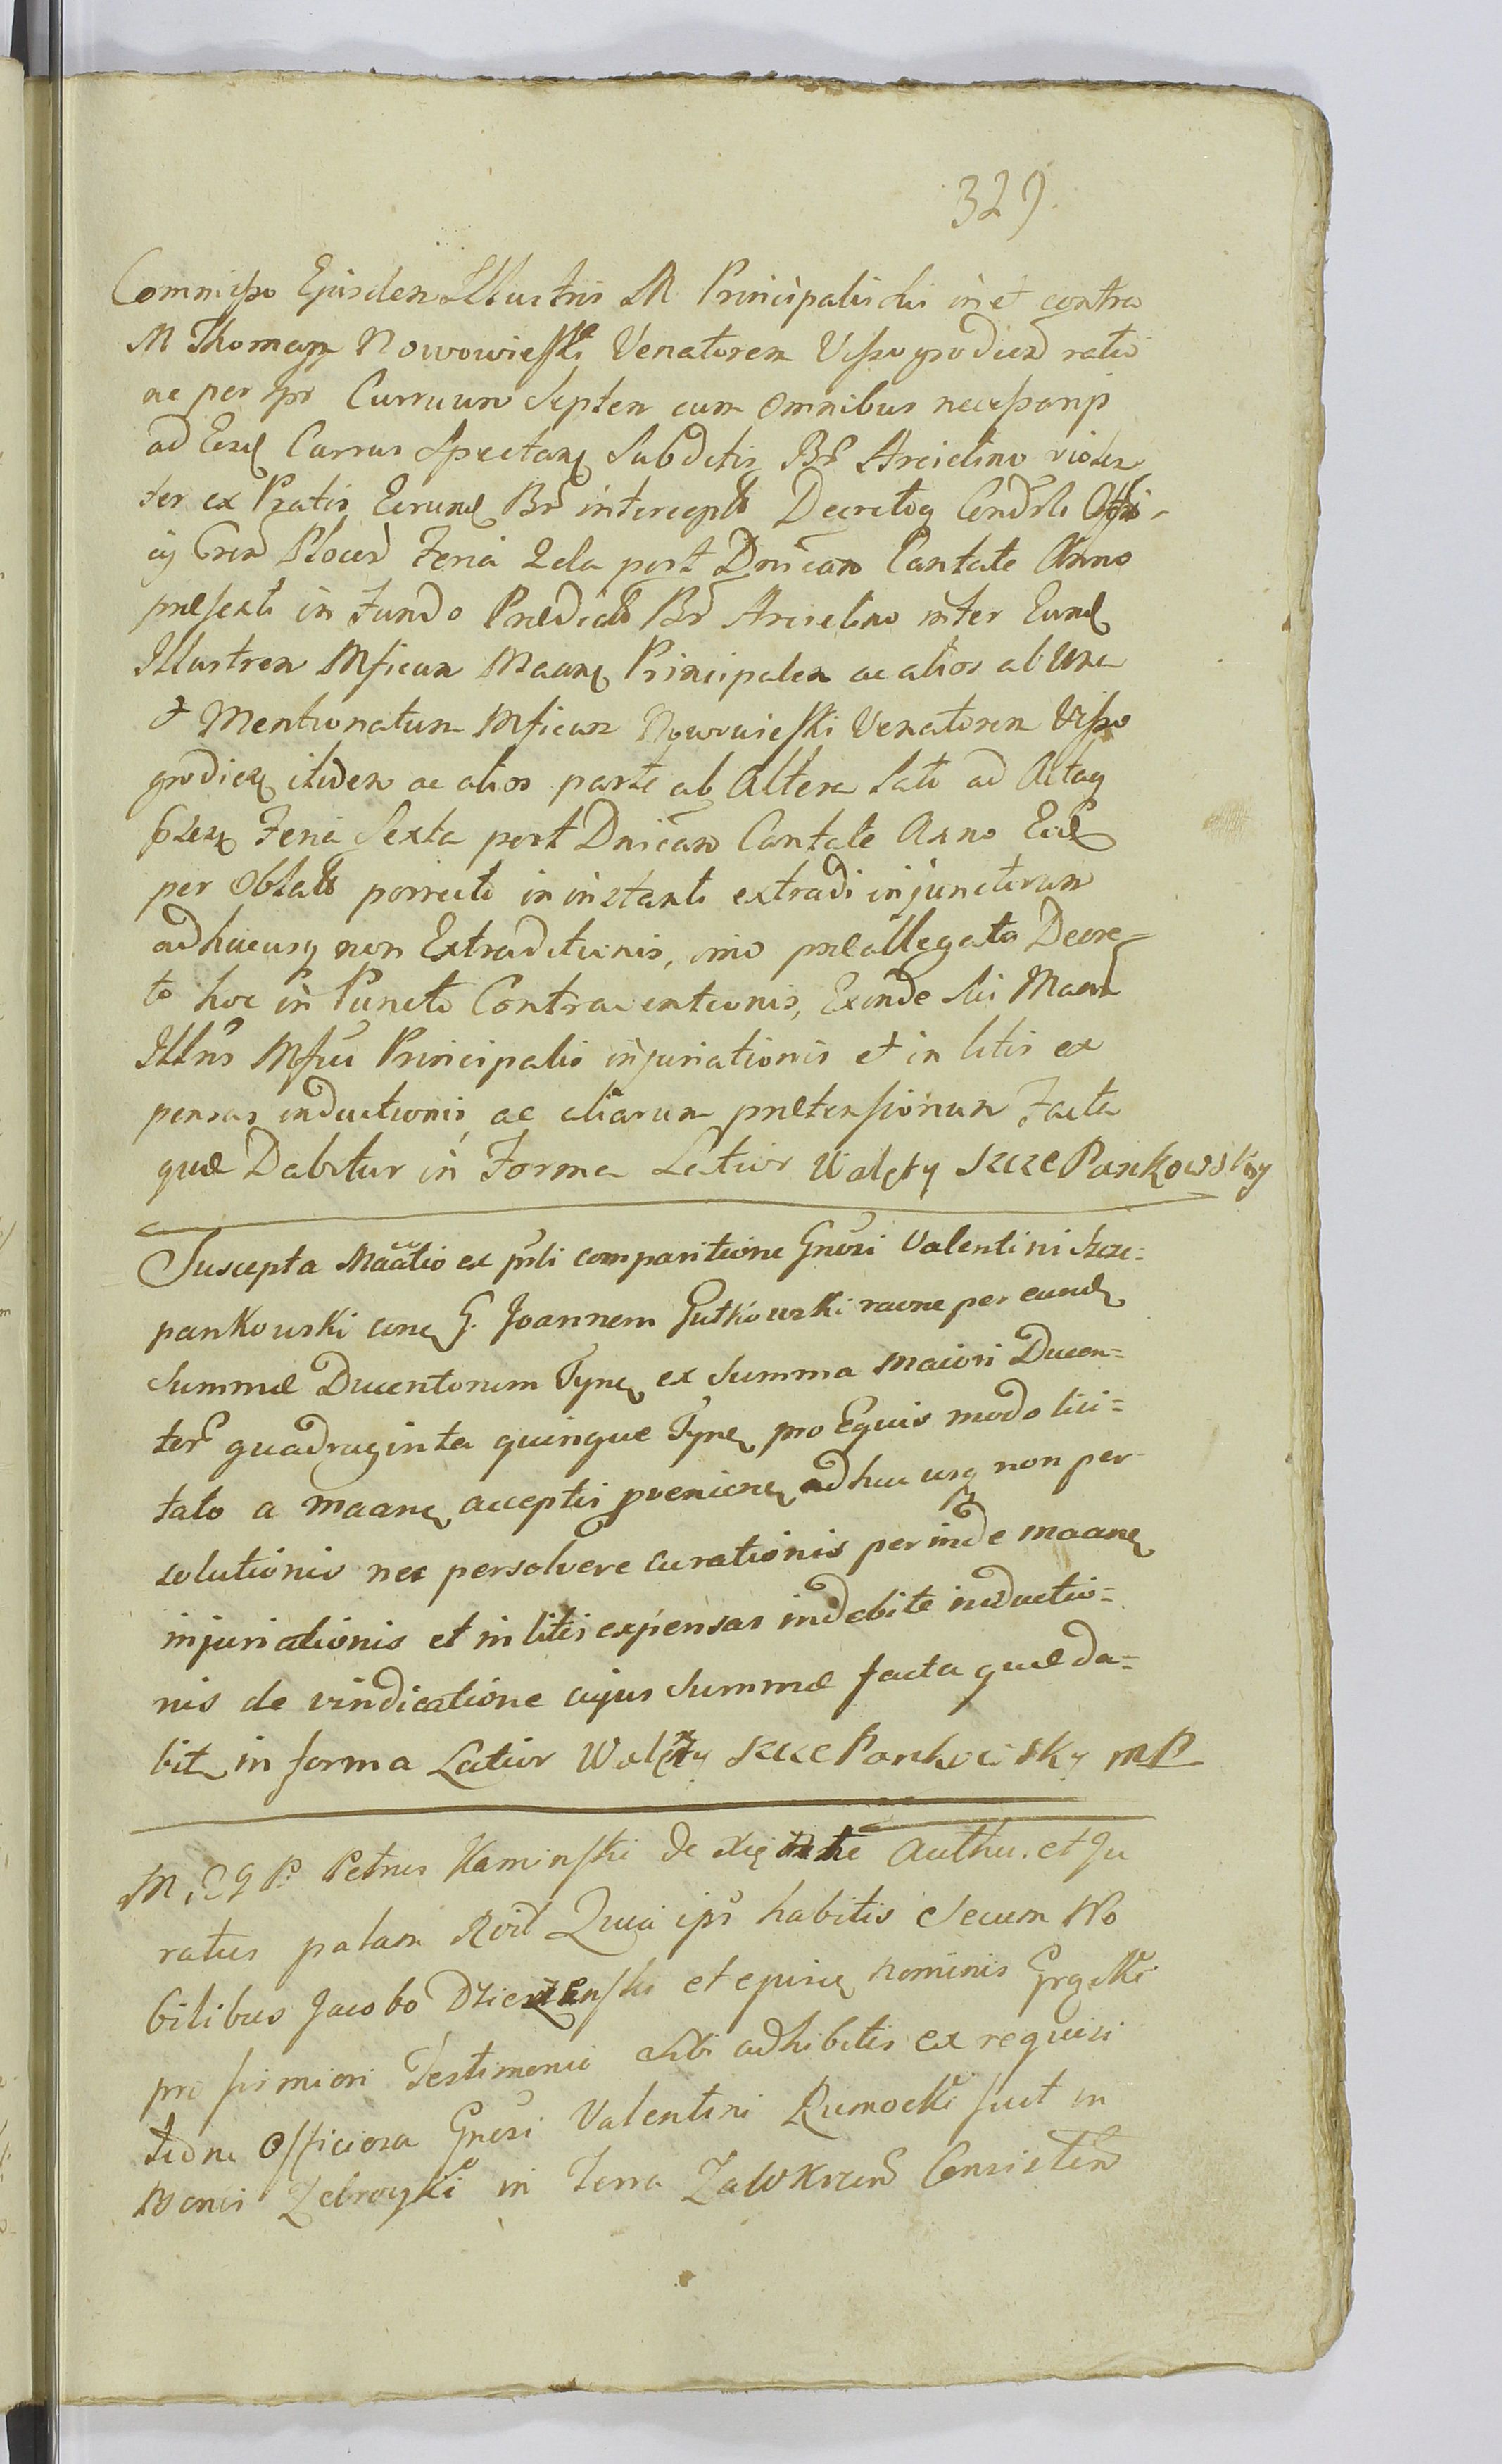 329.
Commisso Ejusdem Illustris M Principalis sui in et contra
M Thomam Nowowieski Venatorem Vissogrodien ratio
ne per ipm Curruum Septem cum Omnibus necessarijs
ad Eosd Currus Spectanq Subditis Br Arcielino violen
ter ex Pratis Eorund Br interceptis Decretoq Condsli Offi-
cij Cren Plocen Feria 2da post Dnicam Cantate Anno
præsenti in Fundo Prædictis Br Arcielino inter Eund
Illustrem Mficum Maanq Principalem ac alios ab Una
& Mentionatum Mficum Nowowieski Venatorem Visso
grodien itidem ac alios parte ab Altera Lato ad Actaq
præsen Feria Sexta post Dnicam Cantate Anno Eod
per Oblatis porrecto in instanti extradi injunctorum
adhucusq non Extraditionis, imo præallegato Decre=
to hoc in Puncto Contraventionis, Exinde sui Maan
Illris Mfici Principalis injuriationis et in litis ex
pensas inductionis ac aliarum prætensionum Facta
quæ Dabitur in Forma Latior Walęty SzczePankowsky
Suscepta Maatio ex prli comparitione Gnosi Valentini Szcze=
pankowski conq G. Joannem Gutkowski raone per eund
Summæ Ducentorum Tynq ex Summa maiori Ducen=
tor quadraginta quinque Tynq pro Equis modo lici=
tato a maanq acceptis proenienq adhucusq non per
solutionis nec persolvere curationis perinde maanq
injuriationis et in litis expensas indebite inductio=
nis de vindicatione cujus Summæ facta quæ da=
bit in forma Latior Walęty SzczePankowsky mP
M. Petrus Kaminski de Authen. et Ju
ratus palam Rcit Quia ips habitis Secum No
bilibus Jacobo et ejusq nominis
pro firmiori Testimonio Sibi adhibitis ex requisi
tione Officiosa Gnosi Valentini Rumocki fuit in
Bonis Zebroszki in Terra Zawkrzen Consisten